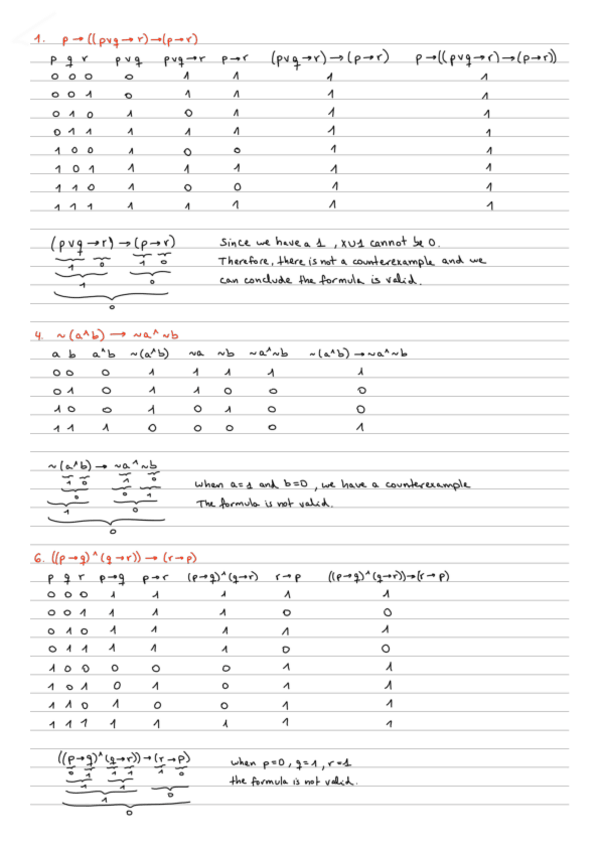 1. p→((pvq→r)→(p→r)
p q r pvq pvq→r p→r (pvq→r)→(p→r) p→((pvq→r)→(p→r))
0 0 0 0 1 1 1 1
0 0 1 0 1 1 1 1
0 1 0 1 0 1 1 1
0 1 1 1 1 1 1 1
1 0 0 1 0 0 1 1
1 0 1 1 1 1 1 1
1 1 0 1 0 0 1 1
1 1 1 1 1 1 1 1
(pvq→r)→(p→r) Since we have a 1, xu1 cannot be 0.
1 0 1 0 Therefore, there is not a counterexample and we
1 0 can conclude the formula is valid.
0
4. ~(a^b) → ~a^~b
a b a^b ~(a^b) ~a ~b ~a^~b ~(a^b)→~a^~b
0 0 0 1 1 1 1 1
0 1 0 1 1 0 0 0
1 0 0 1 0 1 0 0
1 1 1 0 0 0 0 1
~(a^b)→ ~a^~b
1 0 1 0 when a=1 and b=0, we have a counterexample
0 0 1
1 0 The formula is not valid.
0
6. ((p→q)^(q→r))→(r→p)
p q r p→q p→r (p→q)^(q→r) r→p ((p→q)^(q→r))→(r→p)
0 0 0 1 1 1 1 1
0 0 1 1 1 1 0 0
0 1 0 1 1 1 1 1
0 1 1 1 1 1 0 0
1 0 0 0 0 0 1 1
1 0 1 0 1 0 1 1
1 1 0 1 0 0 1 1
1 1 1 1 1 1 1 1
((p→q)^(q→r))→(r→p) when p=0, q=1, r=1
0 1 1 1 1 0 the formula is not valid.
1 1 0
1
0